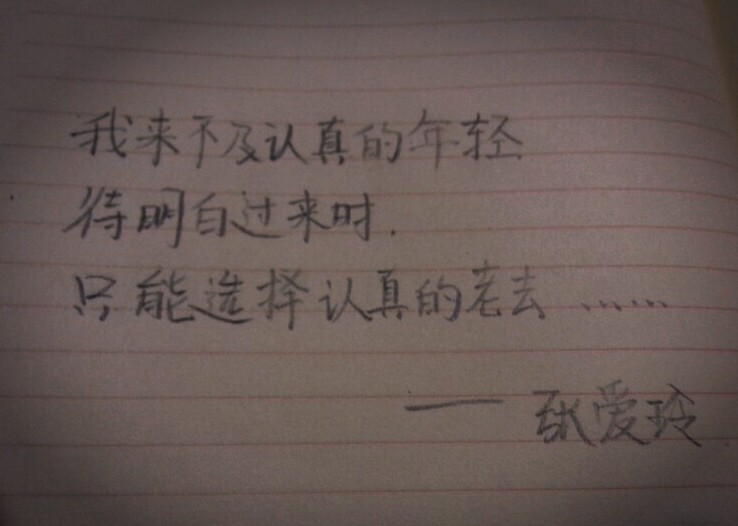 我来不及认真的年轻
待明白过来时.
只能选择认真的老去……
—— 张爱玲